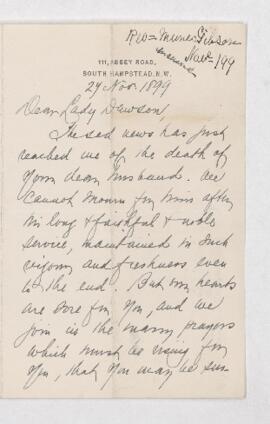 Rev = Munro Gibson
answered
Nov /99
111, ABBEY ROAD,
SOUTH HAMPSTEAD, N.W.
24 Nov. 1899
Dear Lady Dawson,
The sad news has just
reached me of the death of
your dear husband. We
cannot mourn for him after
his long & faithful & noble
service, maintained in such
vigour and freshness even
to the end. But our hearts
are sore for you, and we
join in the many prayers
which must be rising for
you, that you may be sus